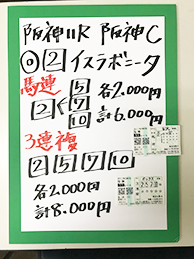 阪神11R 阪神C
◎ 2 イスラボニータ
馬連
2 < 5 7 10 各2,000円
計6,000円
3連複
2 5 7 10
各2,000円
計8,000円